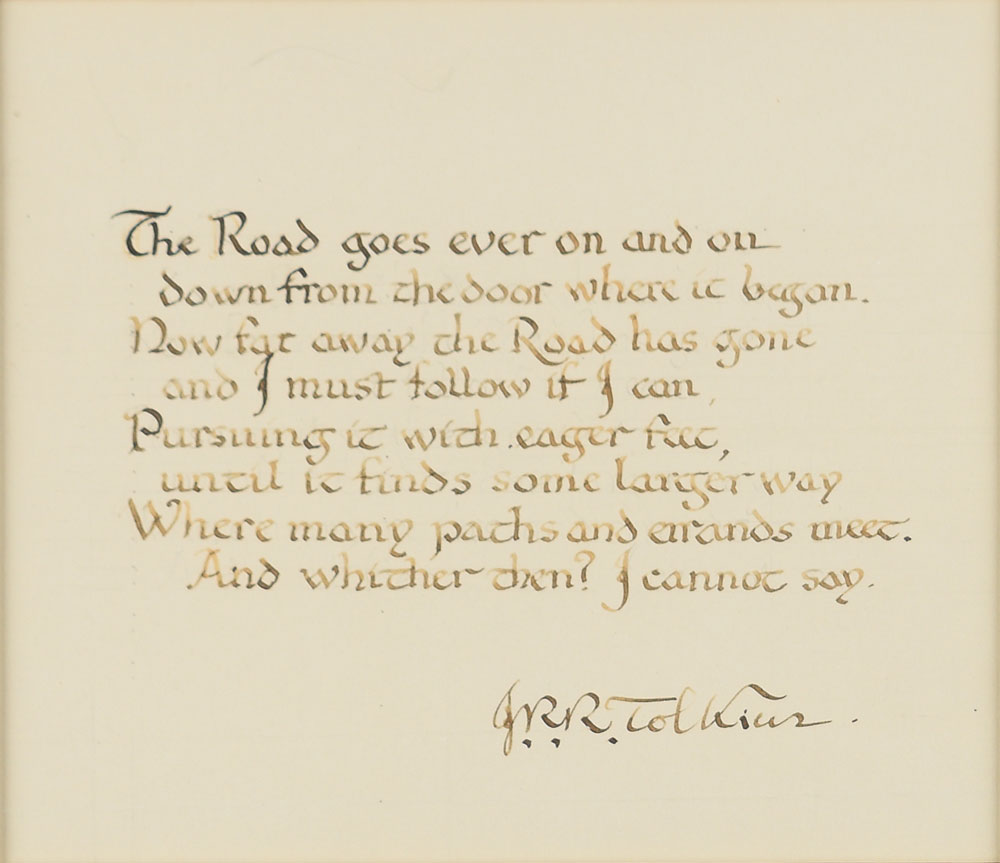 The Road goes ever on and on
down from the door where it began.
Now far away the Road has gone
and I must follow if I can,
Pursuing it with eager feet,
until it finds some larger way
Where many paths and errands meet.
And whither then? I cannot say.
J.R.R. Tolkien.